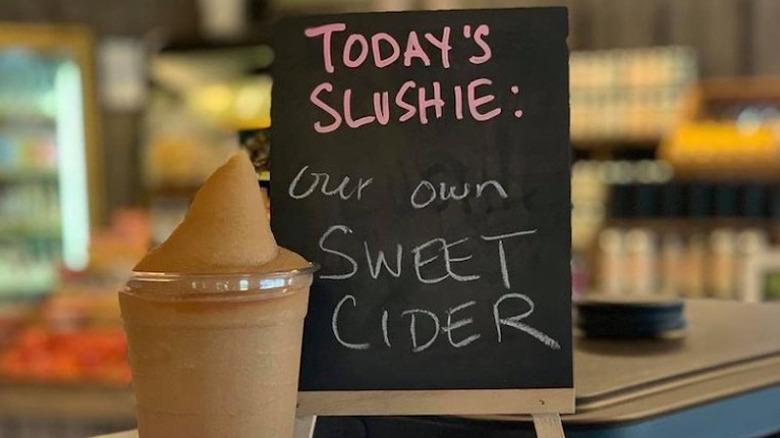 TODAY'S
SLUSHIE:
our own
SWEET
CIDER